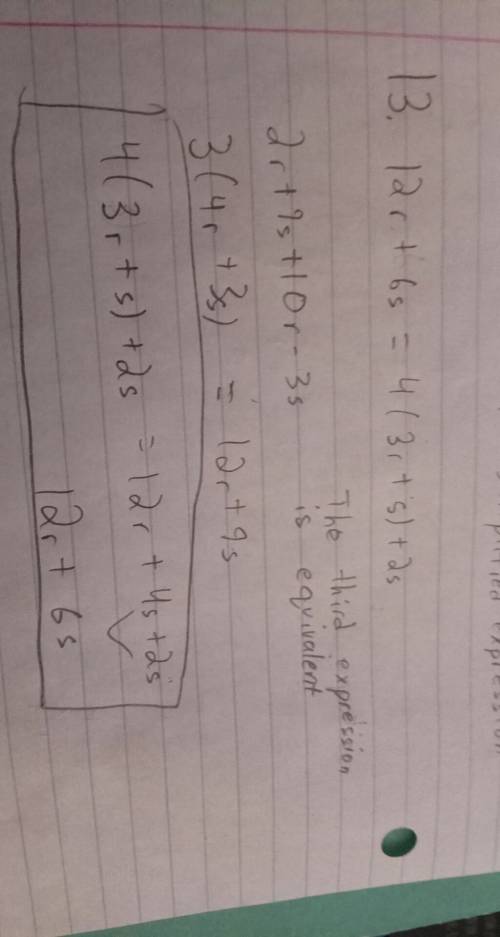 13. 12r + 6s = 4(3r + s) + 2s
The third expression
is equivalent
2r + 9s + 10r - 3s
3(4r + 3s) = 12r + 9s
4(3r + s) + 2s = 12r + 4s + 2s
12r + 6s